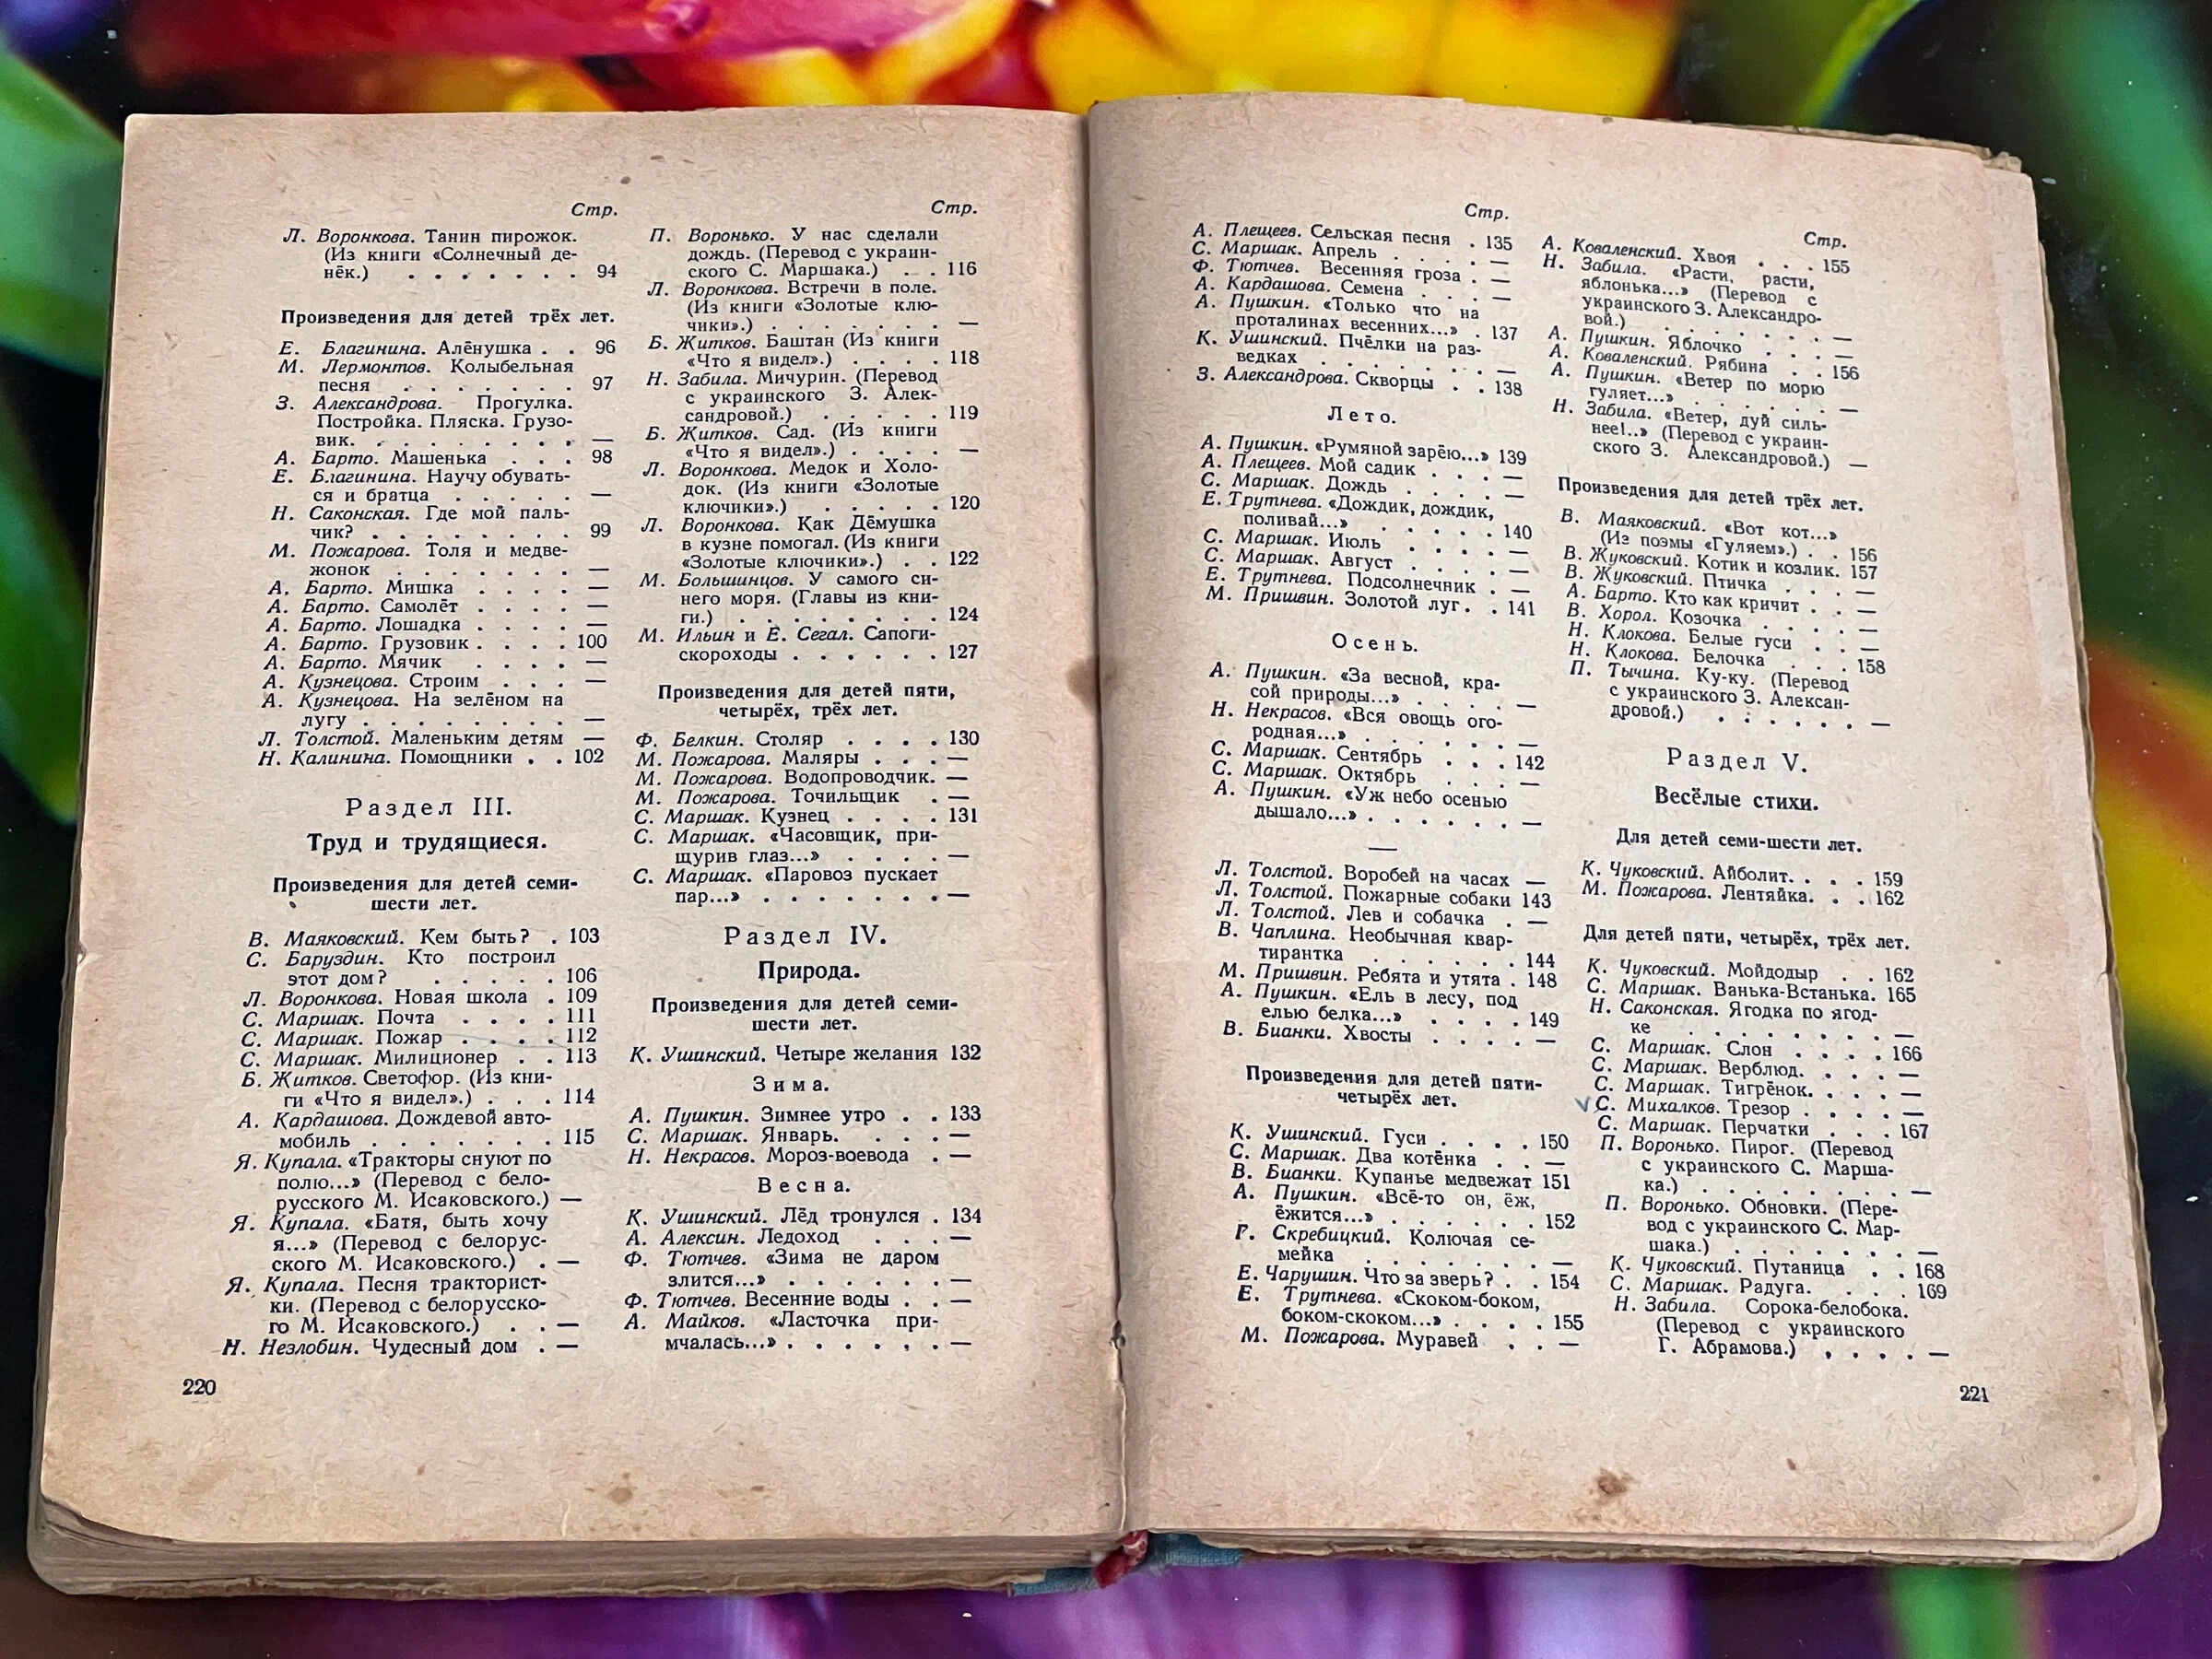 Стр.
Л. Воронкова. Танин пирожок.
(Из книги «Солнечный де-
нёк.) . . . . . . . 94
Произведения для детей трёх лет.
Е. Благинина. Алёнушка . . 96
М. Лермонтов. Колыбельная
песня . . . . . . . 97
З. Александрова. Прогулка.
Постройка. Пляска. Грузо-
вик. . . . . . . . . —
А. Барто. Машенька . . . 98
Е. Благинина. Научу обувать-
ся и братца . . . . . —
Н. Саконская. Где мой паль-
чик? . . . . . . . . 99
М. Пожарова. Толя и медве-
жонок . . . . . . . —
А. Барто. Мишка . . . . —
А. Барто. Самолёт . . . . —
А. Барто. Лошадка . . . . —
А. Барто. Грузовик . . . . 100
А. Барто. Мячик . . . . —
А. Кузнецова. Строим . . . —
А. Кузнецова. На зелёном на
лугу . . . . . . . . —
Л. Толстой. Маленьким детям —
Н. Калинина. Помощники . . 102
Раздел III.
Труд и трудящиеся.
Произведения для детей семи-
шести лет.
В. Маяковский. Кем быть? . 103
С. Баруздин. Кто построил
этот дом? . . . . . 106
Л. Воронкова. Новая школа . 109
С. Маршак. Почта . . . . 111
С. Маршак. Пожар . . . . 112
С. Маршак. Милиционер . . 113
Б. Житков. Светофор. (Из кни-
ги «Что я видел».) . . . 114
А. Кардашова. Дождевой авто-
мобиль . . . . . . . 115
Я. Купала. «Тракторы снуют по
полю...» (Перевод с бело-
русского М. Исаковского.) —
Я. Купала. «Батя, быть хочу
я...» (Перевод с белорус-
ского М. Исаковского.) . —
Я. Купала. Песня тракторист-
ки. (Перевод с белорусско-
го М. Исаковского.) . . —
Н. Незлобин. Чудесный дом . —
220
Стр.
П. Воронько. У нас сделали
дождь. (Перевод с украин-
ского С. Маршака.) . . 116
Л. Воронкова. Встречи в поле.
(Из книги «Золотые клю-
чики».) . . . . . . . —
Б. Житков. Баштан (Из книги
«Что я видел».) . . . . 118
Н. Забила. Мичурин. (Перевод
с украинского З. Алек-
сандровой.) . . . . . 119
Б. Житков. Сад. (Из книги
«Что я видел».) . . . . —
Л. Воронкова. Медок и Холо-
док. (Из книги «Золотые
ключики».) . . . . . 120
Л. Воронкова. Как Дёмушка
в кузне помогал. (Из книги
«Золотые ключики».) . . 122
М. Большинцов. У самого си-
него моря. (Главы из кни-
ги.) . . . . . . . . 124
М. Ильин и Е. Сегал. Сапоги-
скороходы . . . . . . 127
Произведения для детей пяти,
четырёх, трёх лет.
Ф. Белкин. Столяр . . . . 130
М. Пожарова. Маляры . . . —
М. Пожарова. Водопроводчик. —
М. Пожарова. Точильщик . —
С. Маршак. Кузнец . . . . 131
С. Маршак. «Часовщик, при-
щурив глаз...» . . . . —
С. Маршак. «Паровоз пускает
пар...» . . . . . . . . —
Раздел IV.
Природа.
Произведения для детей семи-
шести лет.
К. Ушинский. Четыре желания 132
Зима.
А. Пушкин. Зимнее утро . . 133
С. Маршак. Январь. . . . —
Н. Некрасов. Мороз-воевода . —
Весна.
К. Ушинский. Лёд тронулся . 134
А. Алексин. Ледоход . . . —
Ф. Тютчев. «Зима не даром
злится...» . . . . . . —
Ф. Тютчев. Весенние воды . . —
А. Майков. «Ласточка при-
мчалась...» . . . . . . —
Стр.
А. Плещеев. Сельская песня . 135
С. Маршак. Апрель . . . . —
Ф. Тютчев. Весенняя гроза . —
А. Кардашова. Семена . . . —
А. Пушкин. «Только что на
проталинах весенних...» . 137
К. Ушинский. Пчёлки на раз-
ведках . . . . . . . —
З. Александрова. Скворцы . . 138
Лето.
А. Пушкин. «Румяной зарёю...» 139
А. Плещеев. Мой садик . . . —
С. Маршак. Дождь . . . . —
Е. Трутнева. «Дождик, дождик,
поливай...» . . . . . 140
С. Маршак. Июль . . . . —
С. Маршак. Август . . . . —
Е. Трутнева. Подсолнечник . —
М. Пришвин. Золотой луг. . 141
Осень.
А. Пушкин. «За весной, кра-
сой природы...» . . . . —
Н. Некрасов. «Вся овощь ого-
родная...» . . . . . . —
С. Маршак. Сентябрь . . . 142
С. Маршак. Октябрь . . . —
А. Пушкин. «Уж небо осенью
дышало...» . . . . . . —
—
Л. Толстой. Воробей на часах —
Л. Толстой. Пожарные собаки 143
Л. Толстой. Лев и собачка . —
В. Чаплина. Необычная квар-
тирантка . . . . . . 144
М. Пришвин. Ребята и утята . 148
А. Пушкин. «Ель в лесу, под
елью белка...» . . . . 149
В. Бианки. Хвосты . . . . —
Произведения для детей пяти-
четырёх лет.
К. Ушинский. Гуси . . . . 150
С. Маршак. Два котёнка . . —
В. Бианки. Купанье медвежат 151
А. Пушкин. «Всё-то он, ёж,
ёжится...» . . . . . . 152
Г. Скребицкий. Колючая се-
мейка . . . . . . . —
Е. Чарушин. Что за зверь? . . 154
Е. Трутнева. «Скоком-боком,
боком-скоком...» . . . . 155
М. Пожарова. Муравей . . —
Стр.
А. Коваленский. Хвоя . . . 155
Н. Забила. «Расти, расти,
яблонька...» (Перевод с
украинского З. Александро-
вой.) . . . . . . —
А. Пушкин. Яблочко . . . —
А. Коваленский. Рябина . . 156
А. Пушкин. «Ветер по морю
гуляет...» . . . . . . —
Н. Забила. «Ветер, дуй силь-
нее!..» (Перевод с украин-
ского З. Александровой.) —
Произведения для детей трёх лет.
В. Маяковский. «Вот кот...»
(Из поэмы «Гуляем».) . . 156
В. Жуковский. Котик и козлик. 157
В. Жуковский. Птичка . . . —
А. Барто. Кто как кричит . . —
В. Хорол. Козочка . . . . —
Н. Клокова. Белые гуси . . —
Н. Клокова. Белочка . . . 158
П. Тычина. Ку-ку. (Перевод
с украинского З. Алексан-
дровой.) . . . . . . —
Раздел V.
Весёлые стихи.
Для детей семи-шести лет.
К. Чуковский. Айболит. . . . 159
М. Пожарова. Лентяйка. . . 162
Для детей пяти, четырёх, трёх лет.
К. Чуковский. Мойдодыр . . 162
С. Маршак. Ванька-Встанька. 165
Н. Саконская. Ягодка по ягод-
ке . . . . . . . —
С. Маршак. Слон . . . . 166
С. Маршак. Верблюд. . . . —
С. Маршак. Тигрёнок. . . . —
С. Михалков. Трезор . . . . —
С. Маршак. Перчатки . . . 167
П. Воронько. Пирог. (Перевод
с украинского С. Марша-
ка.) . . . . . . . . —
П. Воронько. Обновки. (Пере-
вод с украинского С. Мар-
шака.) . . . . . . . —
К. Чуковский. Путаница . . 168
С. Маршак. Радуга. . . . 169
Н. Забила. Сорока-белобока.
(Перевод с украинского
Г. Абрамова.) . . . . —
221